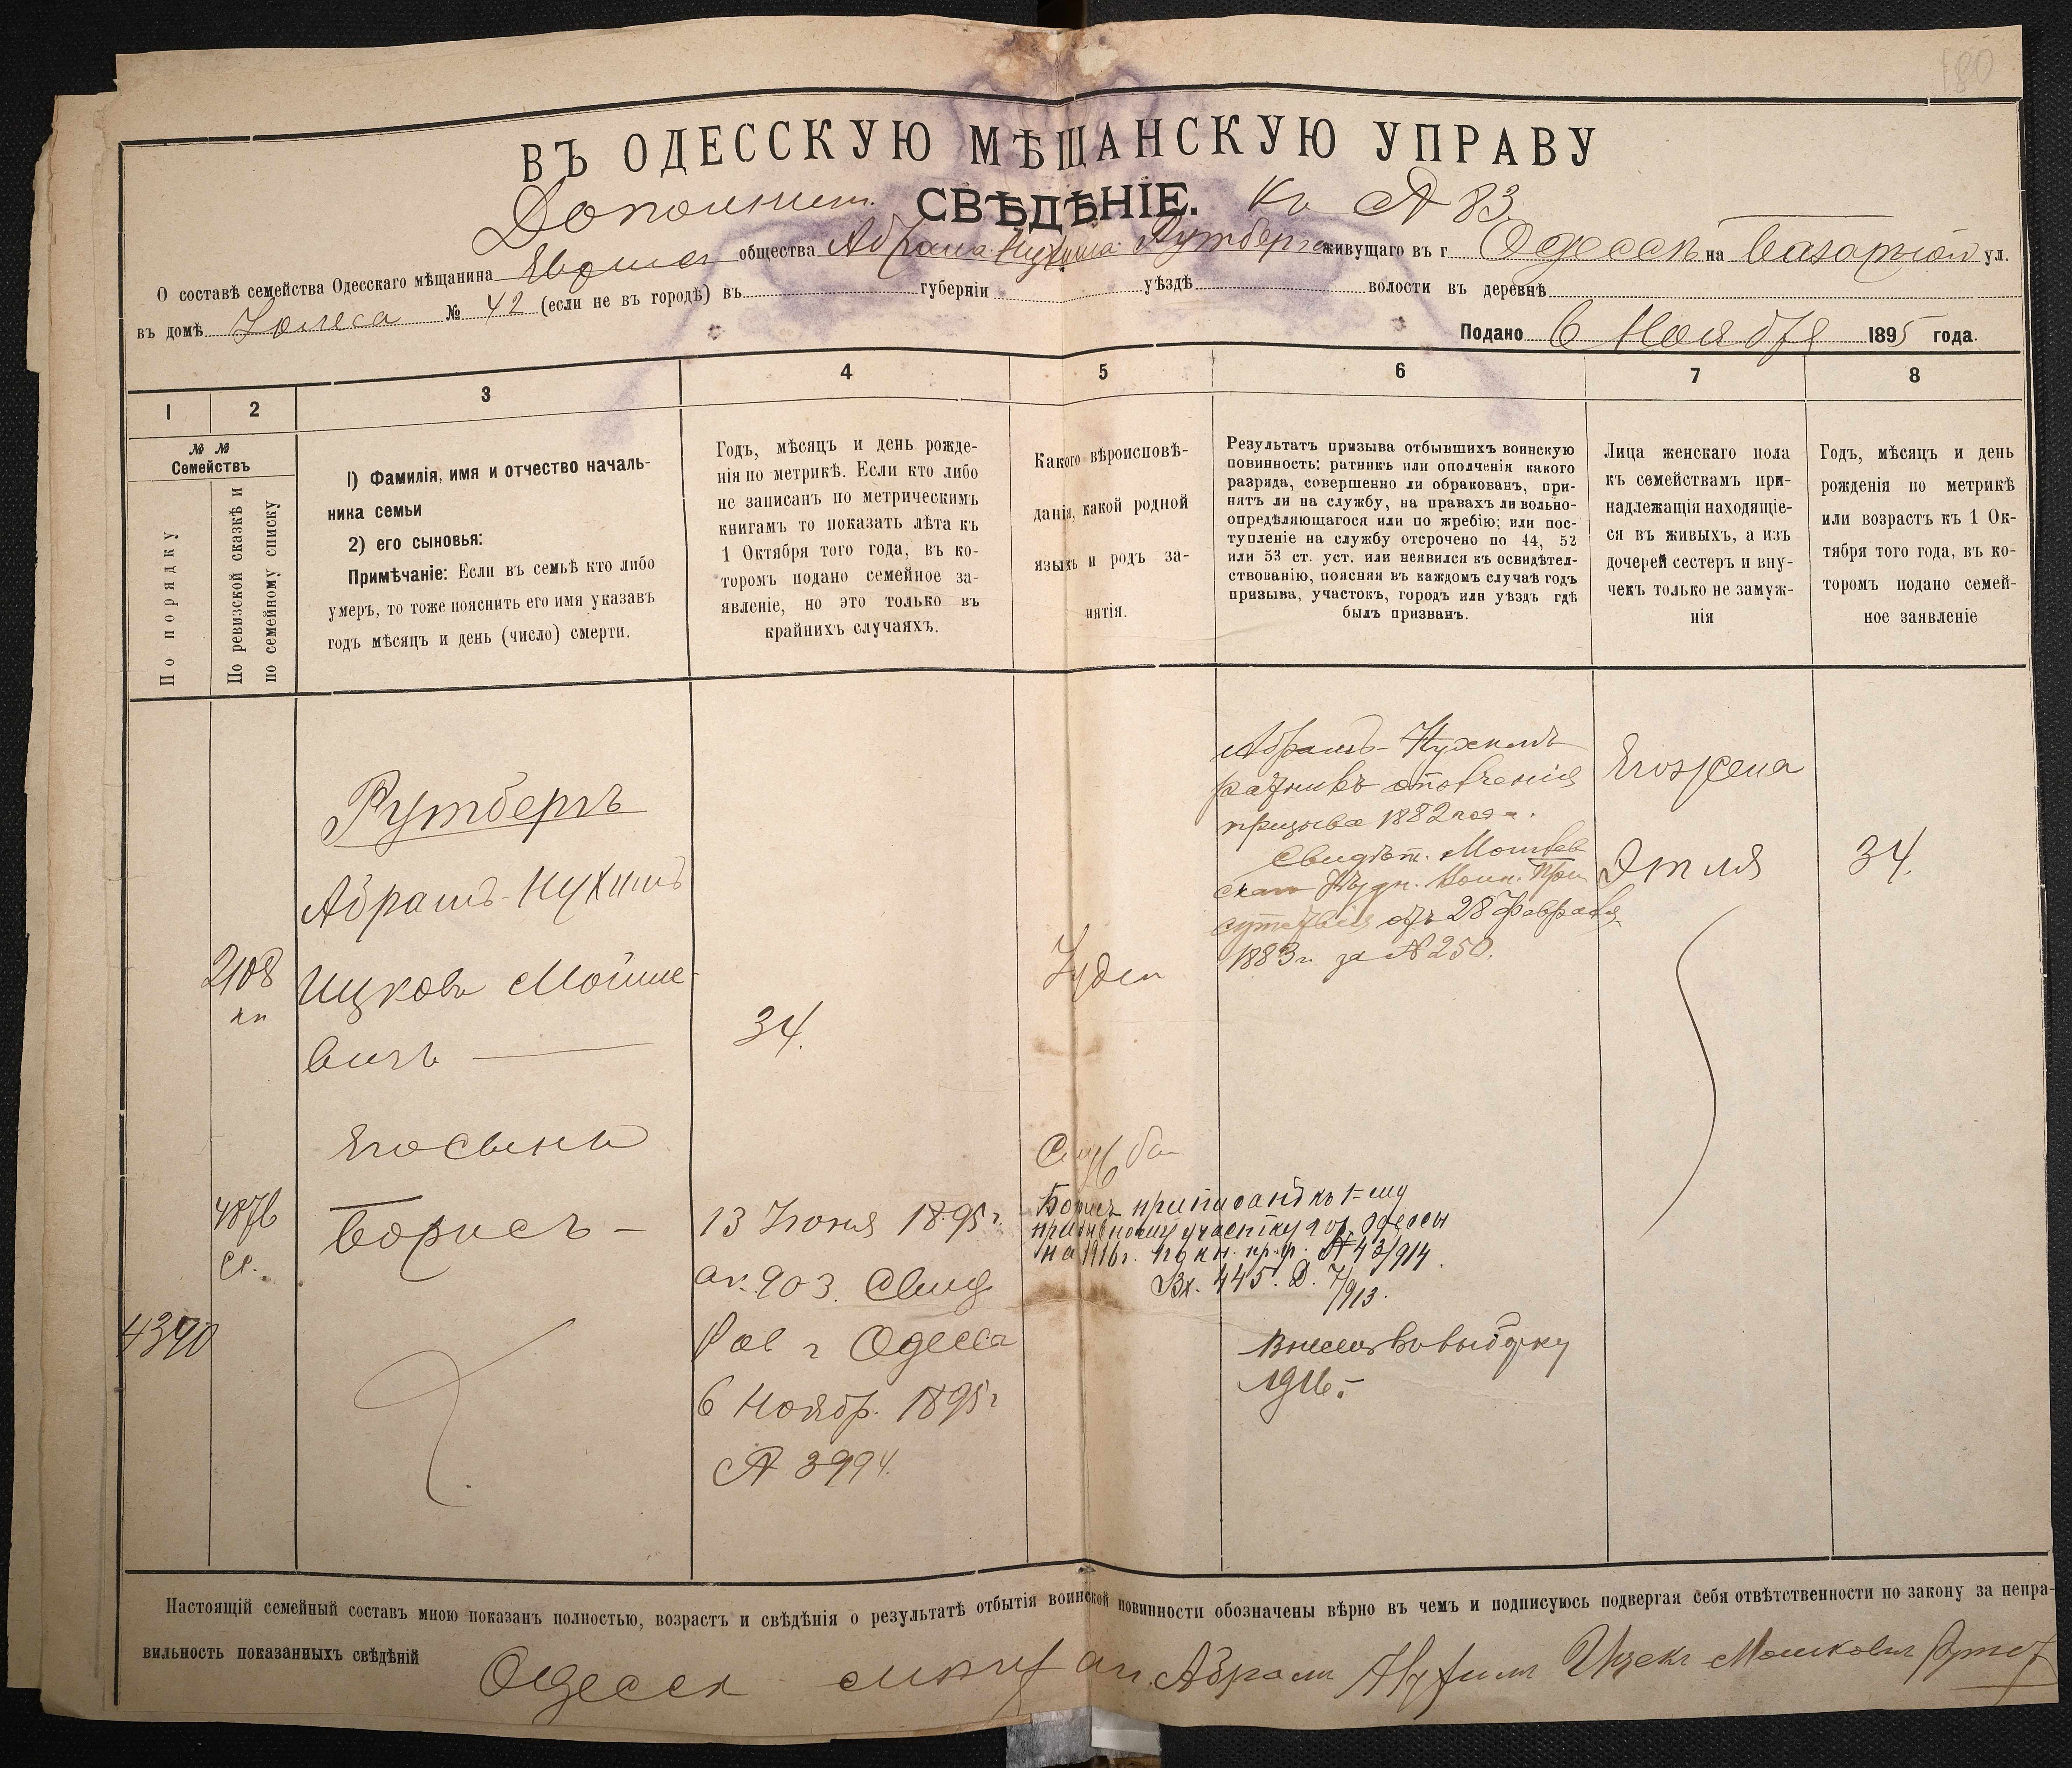 180
ВЪ ОДЕССКУЮ МѢЩАНСКУЮ УПРАВУ
Дополнит. СВѢДѢНІЕ. Къ № 83
О составѣ семейства Одесскаго мѣщанина общества Абрама-Нухима Рутберга живущаго въ г. Одессѣ на Базарной ул.
въ домѣ № 42 (если не въ городѣ) въ губерніи уѣздѣ волости въ деревнѣ
Подано 6 Ноября 1895 года.
1 2 3 4 5 6 7 8
№ №
Семействъ
По порядку
По ревизской сказкѣ и
по семейному списку
1) Фамилія, имя и отчество началь-
ника семьи
2) его сыновья:
Примѣчаніе: Если въ семьѣ кто либо
умеръ, то тоже пояснить его имя указавъ
годъ мѣсяцъ и день (число) смерти.
Годъ, мѣсяцъ и день рожде-
нія по метрикѣ. Если кто либо
не записанъ по метрическимъ
книгамъ то показать лѣта къ
1 Октября того года, въ ко-
торомъ подано семейное за-
явленіе, но это только въ
крайнихъ случаяхъ.
Какого вѣроисповѣ-
данія, какой родной
языкъ и родъ за-
нятія.
Результатъ призыва отбывшихъ воинскую
повинность: ратникъ или ополченія какого
разряда, совершенно ли обракованъ, при-
нятъ ли на службу, на правахъ ли вольно-
опредѣляющагося или по жребію; или пос-
тупленіе на службу отсрочено по 44, 52
или 53 ст. уст. или неявился к освидѣтел-
ствованію, поясняя въ каждомъ случаѣ годъ
призыва, участокъ, городъ или уѣздъ гдѣ
былъ призванъ.
Лица женскаго пола
къ семействамъ при-
надлежащія находящіе-
ся въ живыхъ, а изъ
дочерей сестеръ и вну-
чекъ только не замуж-
нія
Годъ, мѣсяцъ и день
рожденія по метрикѣ
или возрастъ къ 1 Ок-
тября того года, въ ко-
торомъ подано семей-
ное заявленіе
Рутбергъ
Абрамъ-Нухимъ
2108
Ицковъ Мойше-
вичъ
34.
Іудей
Абрамъ-Нухимъ
ратникъ ополченія
призыва 1882 года.
Свидѣт.
сутствія отъ 28 Февраля
1883 г. за № 250.
Его жена
Этля
34.
Его сынъ
Служба
4876
Борисъ
13 Іюня 1895 г.
ак. 903. Свид
Рав г Одесса
6 Ноябр. 1895 г
№ 3994.
4390
Борисъ приписанъ къ 1-му
призывному участку гор. Одессы
на 1916 г. № 43/914.
Вх. 445. Д. 7/913.
Внесенъ въ выборку
1916.
Настоящій семейный составъ мною показанъ полностью, возрастъ и свѣдѣнія о результатѣ отбытія воинской повинности обозначены вѣрно въ чемъ и подписуюсь подвергая себя отвѣтственности по закону за непра-
вильность показанныхъ свѣдѣній Одесск Абрам Нухим Ицек Мошковъ